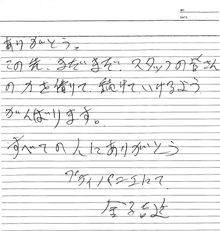 ありがとう。
この先、まだまだ、スタッフの皆さん
の力を借りて 続けていけるよう
がんばります。
すべての人にありがとう
にて
金子